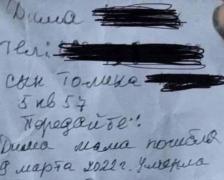 Дима
Телі
сын Толика
5 кв 57
Передайте:
Дима мама погибла
9 марта 2022 г. умерла